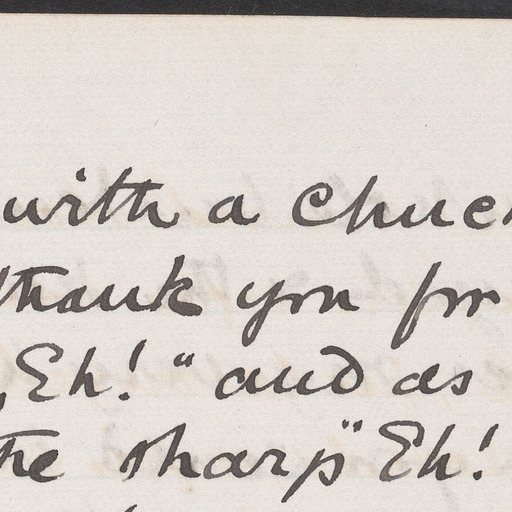 with a chuc
thank you for
Eh!" and as
the sharp "Eh!